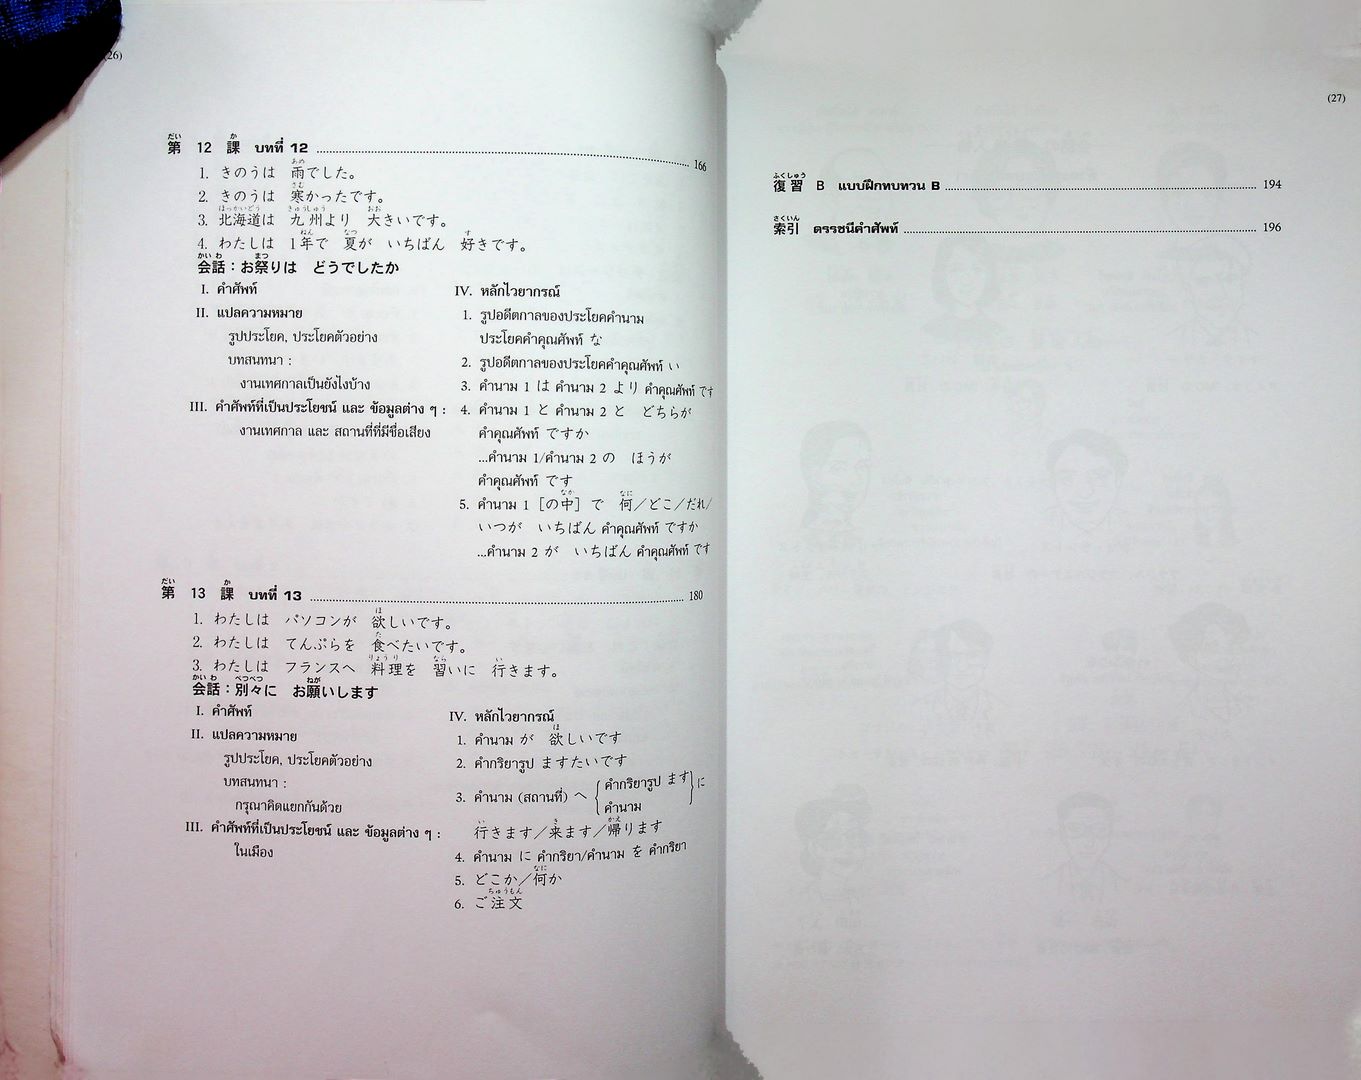 (26)
第 12 課 บทที่ 12 166
1. きのうは 雨でした。
2. きのうは 寒かったです。
3. 北海道は 九州より 大きいです。
4. わたしは 1年で 夏が いちばん 好きです。
会話：お祭りは どうでしたか
I. คำศัพท์
II. แปลความหมาย
รูปประโยค, ประโยคตัวอย่าง
บทสนทนา :
งานเทศกาลเป็นยังไงบ้าง
III. คำศัพท์ที่เป็นประโยชน์ และ ข้อมูลต่าง ๆ :
งานเทศกาล และ สถานที่ที่มีชื่อเสียง
IV. หลักไวยากรณ์
1. รูปอดีตกาลของประโยคคำนาม
ประโยคคำคุณศัพท์ な
2. รูปอดีตกาลของประโยคคำคุณศัพท์ い
3. คำนาม 1 は คำนาม 2 より คำคุณศัพท์ です
4. คำนาม 1 と คำนาม 2 と どちらが
คำคุณศัพท์ ですか
...คำนาม 1/คำนาม 2 の ほうが
คำคุณศัพท์ です
5. คำนาม 1 [の中] で 何／どこ／だれ/
いつが いちばん คำคุณศัพท์ ですか
...คำนาม 2 が いちばん คำคุณศัพท์ です
第 13 課 บทที่ 13 180
1. わたしは パソコンが 欲しいです。
2. わたしは てんぷらを 食べたいです。
3. わたしは フランスへ 料理を 習いに 行きます。
会話：別々に お願いします
I. คำศัพท์
II. แปลความหมาย
รูปประโยค, ประโยคตัวอย่าง
บทสนทนา :
กรุณาคิดแยกกันด้วย
III. คำศัพท์ที่เป็นประโยชน์ และ ข้อมูลต่าง ๆ :
ในเมือง
IV. หลักไวยากรณ์
1. คำนาม が 欲しいです
2. คำกริยารูป ますたいです
3. คำนาม (สถานที่) へ { คำกริยารูป ます
คำนาม } に
行きます／来ます／帰ります
4. คำนาม に คำกริยา/คำนาม を คำกริยา
5. どこか／何か
6. ご注文
(27)
復習 B แบบฝึกทบทวน B 194
索引 ดรรชนีคำศัพท์ 196